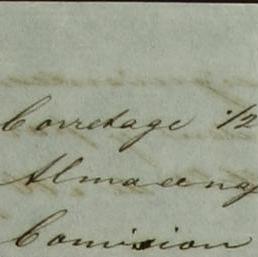 Corretage 1/2
Almacenage
Comision